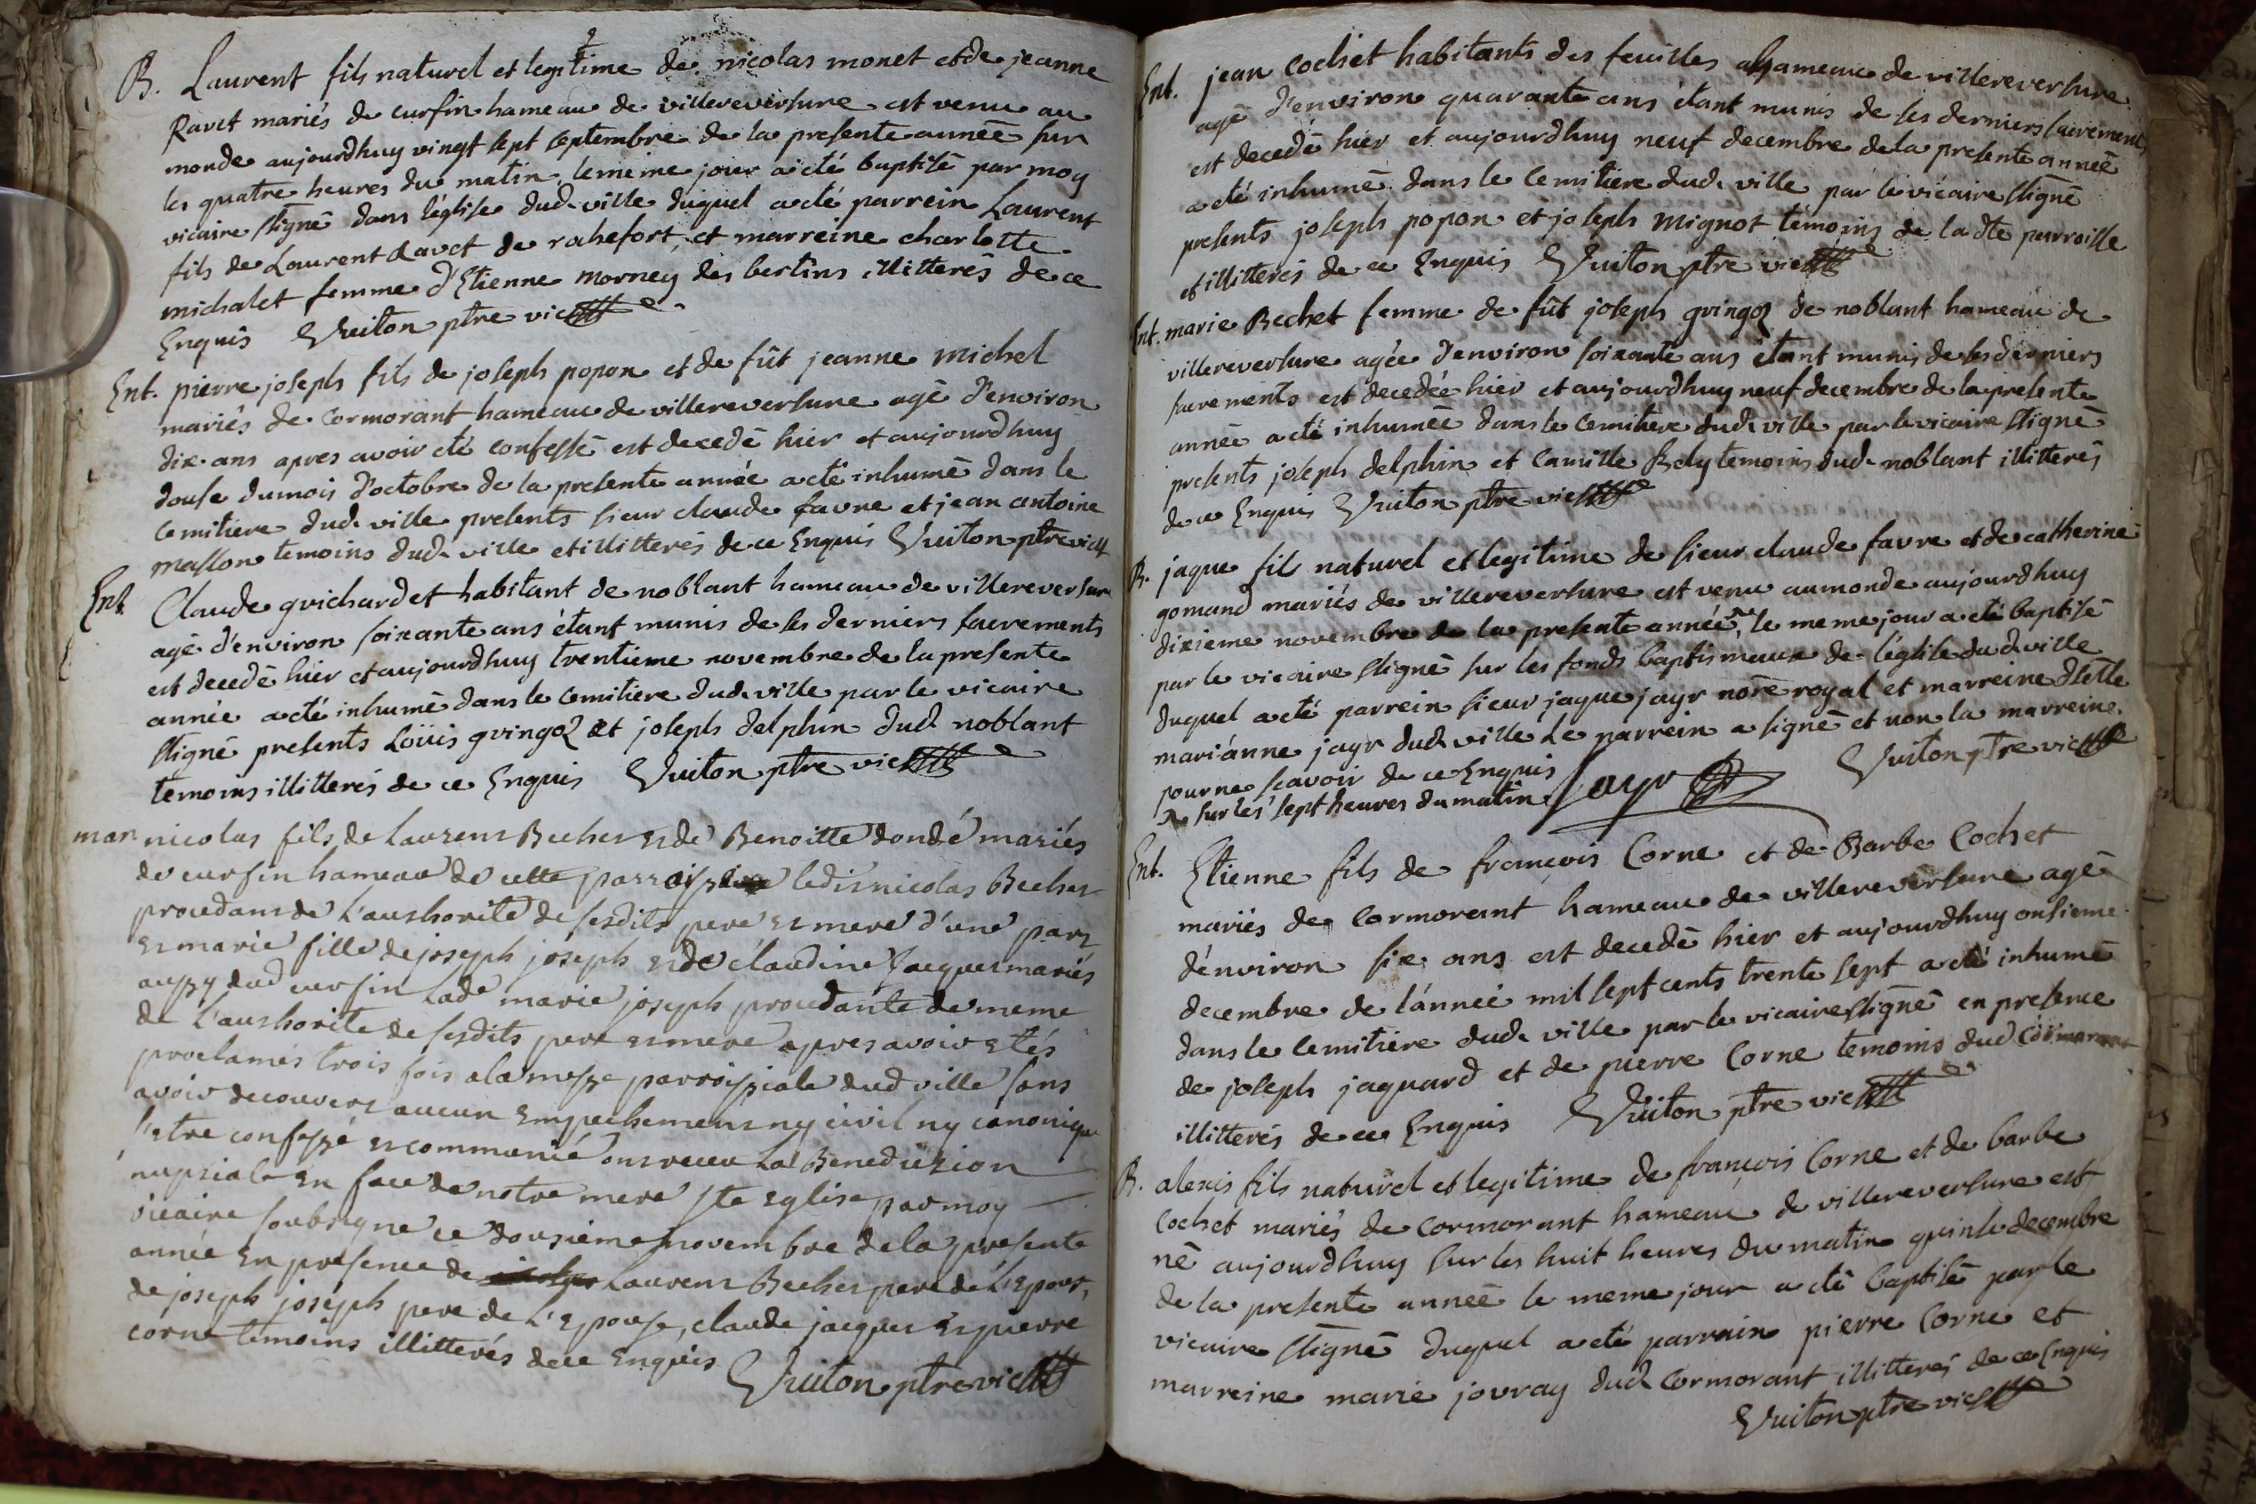 B. Laurent fils naturel et legitime de nicolas monet et de jeanne
Ravet mariés de curfin hameau de villereversure est venu au
monde aujourdhuy vingt sept septembre de la presente année sur
les quatre heures du matin, le meme jour a été baptisé par moy
vicaire ssigné dans l'église dud. ville duquel a été parrein Laurent
fils de Laurent Ravet de rohefort, et marreine charlotte
michalet femme d'Etienne morney des bertins illitterés de ce
Enquis Vuiton ptre vic
Ent. pierre joseph fils de joseph popon et de fût jeanne michel
mariés de cormorant hameau de villereversure agé d'environ
dix ans apres avoir été confessé est decedé hier et aujourdhuy
douse du mois d'octobre de la presente année a été inhumé dans le
cemitiere dud. ville presents sieur claude favre et jean antoine
masson temoins dud. ville et illitterés de ce Enquis Vuiton ptre vic
Ent. Claude guichardet habitant de noblant hameau de villereversure
agé d'environ soixante ans étant munis de ses derniers sacrements
est decedé hier et aujourdhuy trentieme novembre de la presente
année a été inhumé dans le cemitiere dud. ville par le vicaire
ssigné presents Loüis gringoz et joseph delphin dud. noblant
temoins illitterés de ce Enquis Vuiton ptre vic
mar nicolas fils de laurent Bechet et de Benoitte dondé mariés
de curfin hameau de cette parroisse ledit nicolas Bechet
procedant de l'authorité de sesdits pere et mere d'une part
et marie fille de joseph joseph et de claudine Jacquet mariés
aussy dud curfin lade marie joseph procedante de meme
de l'authorité de sesdits pere et mere apres avoir etés
proclamés trois fois a la messe parroissiale dud ville sans
avoir decouvert aucun empechement ny civil ny canonique
s'etre confessé et communié ont receu la Benediction
nuptiale en face de notre mere ste eglise par moy
vicaire soubsigné ce dousieme novembre de la presente
année en presence de Laurent Bechet pere de l'epoux,
de joseph joseph pere de l'epouse, claude jacquet et pierre
corne temoins illitterés de ce enquis Vuiton ptre vic
Ent. jean cochet habitants des feuilles hameau de villereversure
agé d'environ quarante ans étant munis de ses derniers sacrements
est decedé hier et aujourdhuy neuf decembre de la presente année
a été inhumé dans le cemitiere dud. ville par le vicaire ssigné
presents joseph popon et joseph mignot témoins de la dte parroisse
et illitterés de ce Enquis Vuiton ptre vic
Ent. marie Bechet femme de fût joseph gringoz de noblant hameau de
villereversure agée d'environ soixante ans étant munis de ses derniers
sacrements est decedée hier et aujourdhuy neuf decembre de la presente
année a été inhumée dans le cemitiere dud. ville par le vicaire ssigné
presents joseph delphin et Camille Bely temoins dud. noblant illitterés
de ce Enquis Vuiton ptre vic
B. jaque fils naturel et legitime de sieur claude favre et de catherine
gomand mariés de villereversure est venu au monde aujourdhuy
dixieme novembre de la presente année, le meme jour a été baptisé
par le vicaire ssigné sur les fonds baptismaux de l'église dud. ville
duquel a été parrein sieur jaque jayr nore royal et marreine dlelle
marianne jayr dud. ville Le parrein a signé et non la marreine
pour ne scavoir de ce Enquis Vuiton ptre vic
sur les sept heures du matin Jayr
Ent. Etienne fils de françois Corne et de Barbe Cochet
mariés de cormorant hameau de villereversure agé
d'environ six ans est decedé hier et aujourdhuy onsieme
decembre de l'année mil sept cents trente sept a été inhumé
dans le cemitiere dud. ville par le vicaire ssigné en presence
de joseph jaquard et de pierre Corne temoins dud cormorant
illitterés de ce Enquis Vuiton ptre vic
B. alexis fils naturel et legitime de françois Corne et de barbe
Cochet mariés de cormorant hameau de villereversure est
né aujourdhuy sur les huit heures du matin quinse decembre
de la presente année le meme jour a été baptisé par le
vicaire ssigné duquel a été parrain pierre Corne et
marreine marie jouvray dud. cormorant illitterés de ce Enquis
Vuiton ptre vic